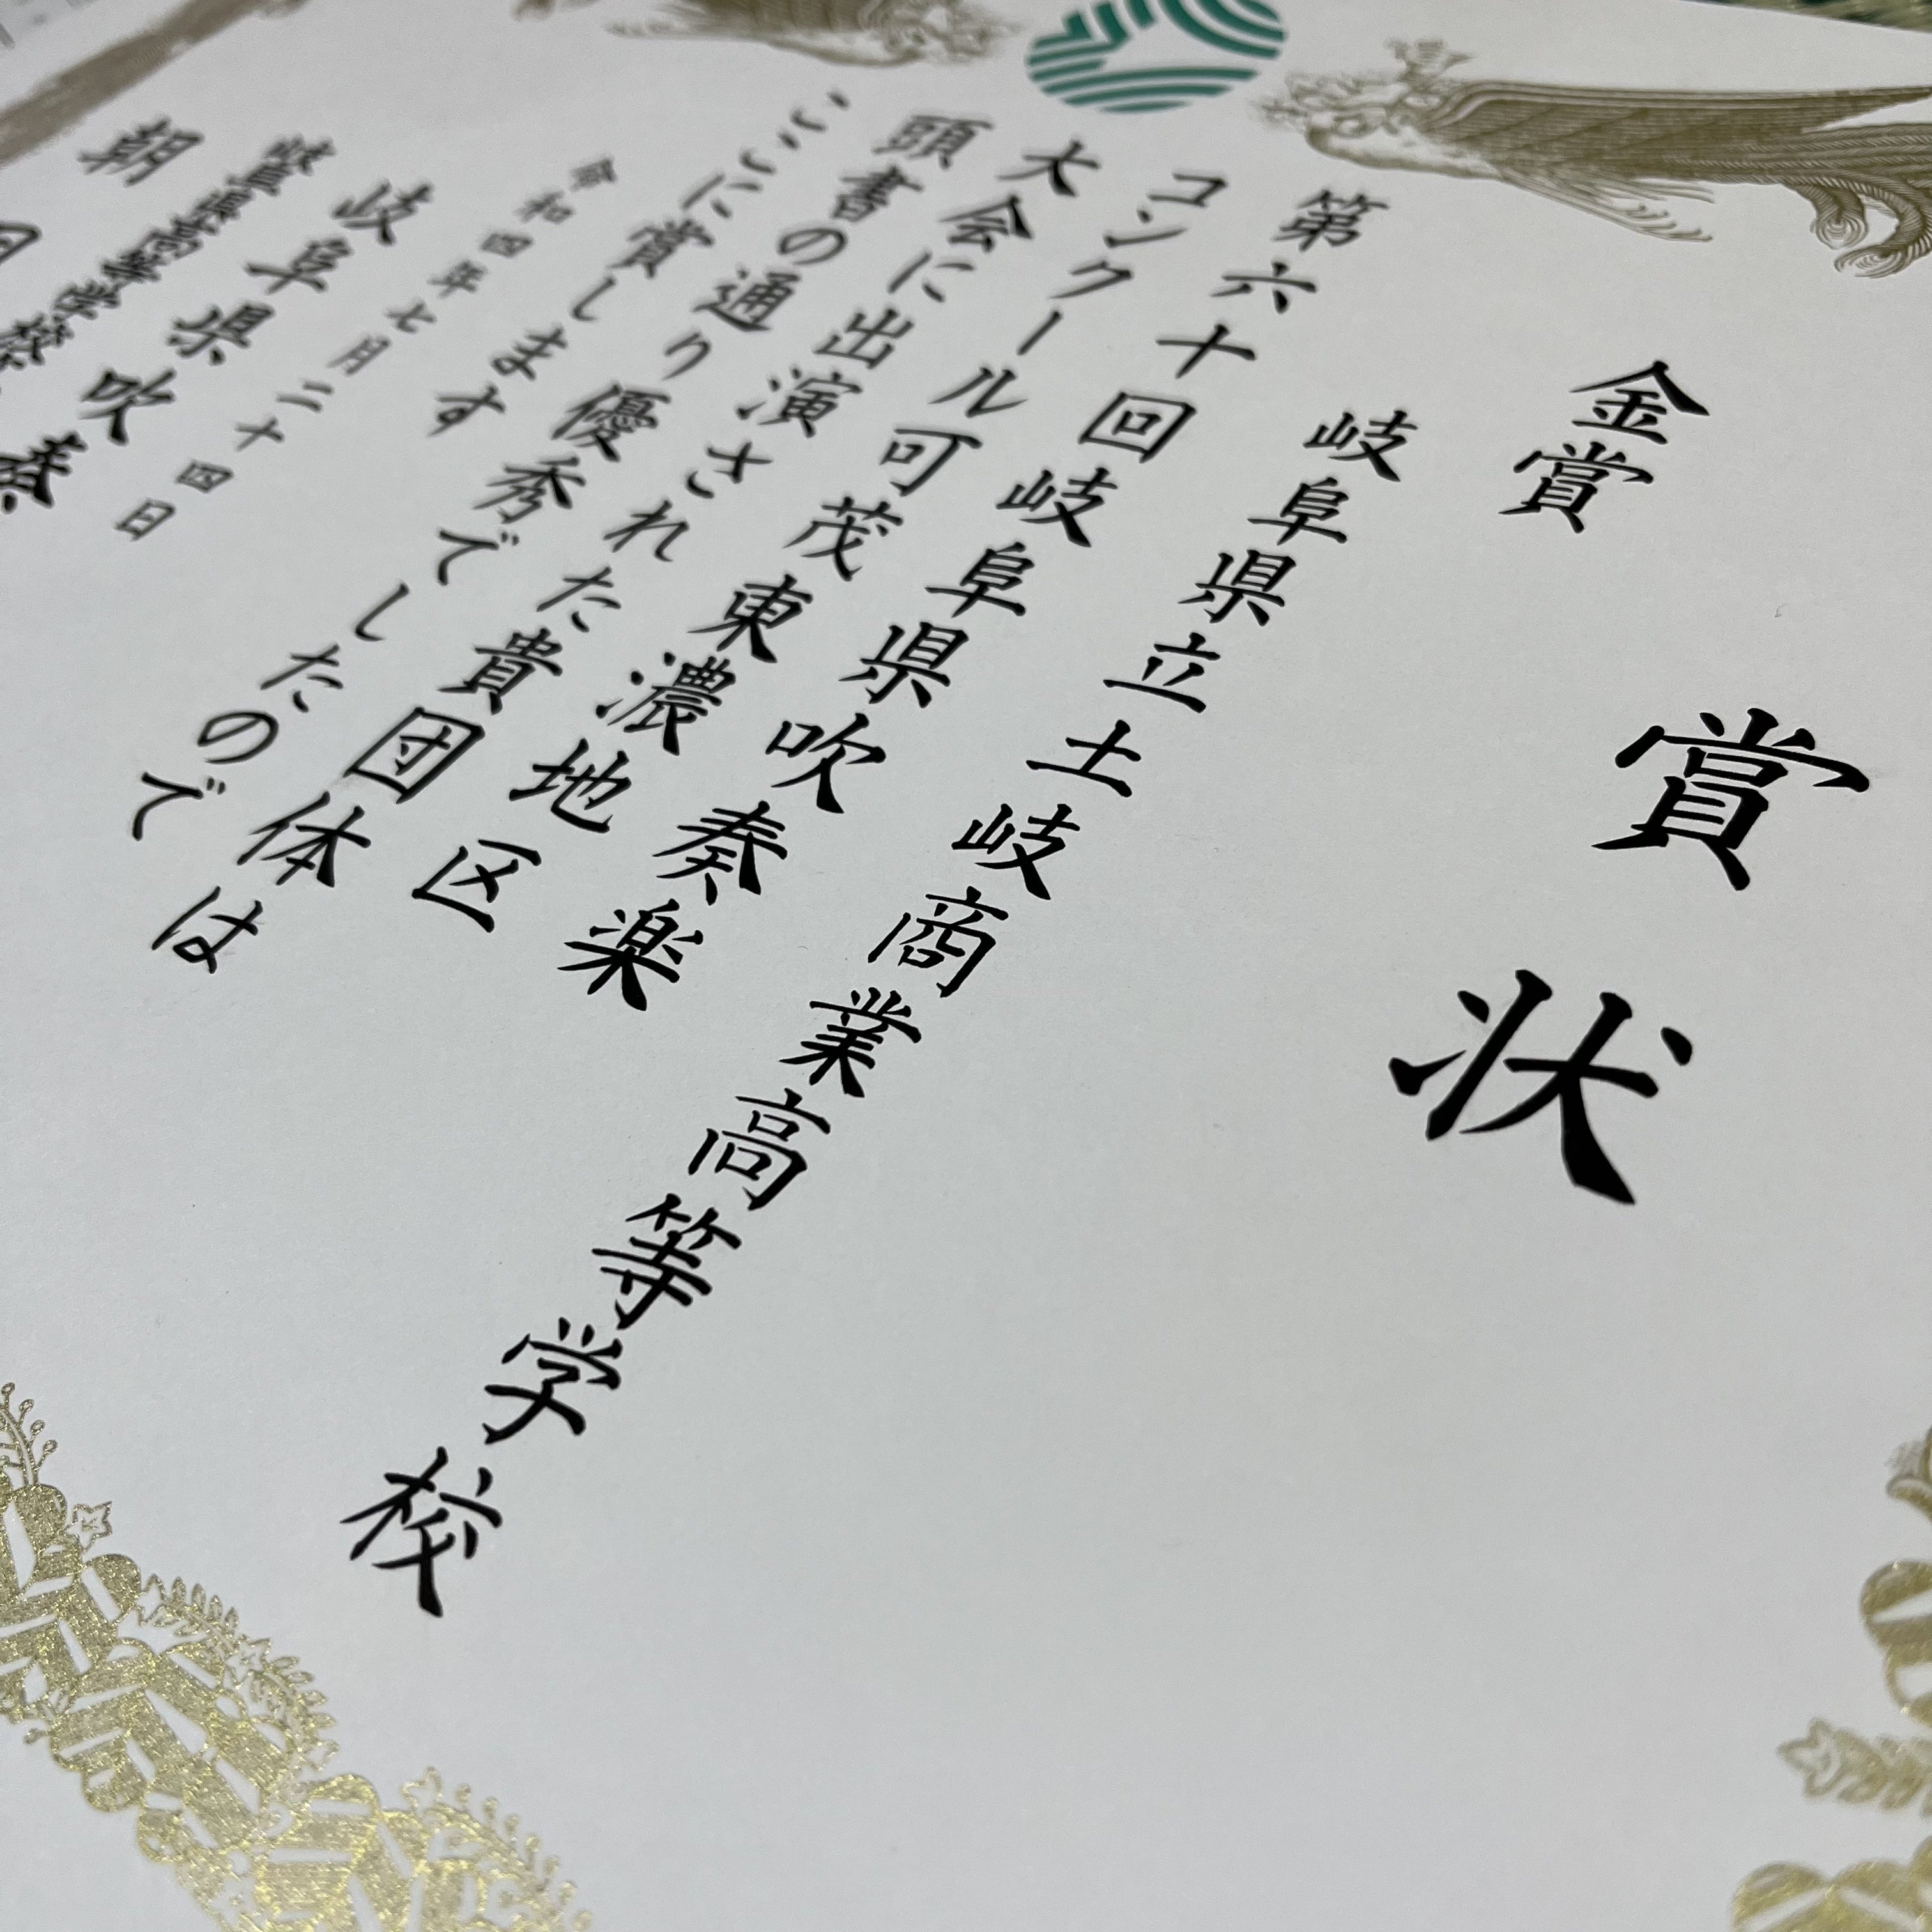 賞状
金賞
岐阜県立土岐商業高等学校
第六十回岐阜県吹奏楽
コンクール可茂東濃地区
大会に出演された貴団体は
頭書の通り優秀でしたので
ここに賞します
令和四年七月二十四日
岐阜県吹奏
岐阜県高等学校
朝